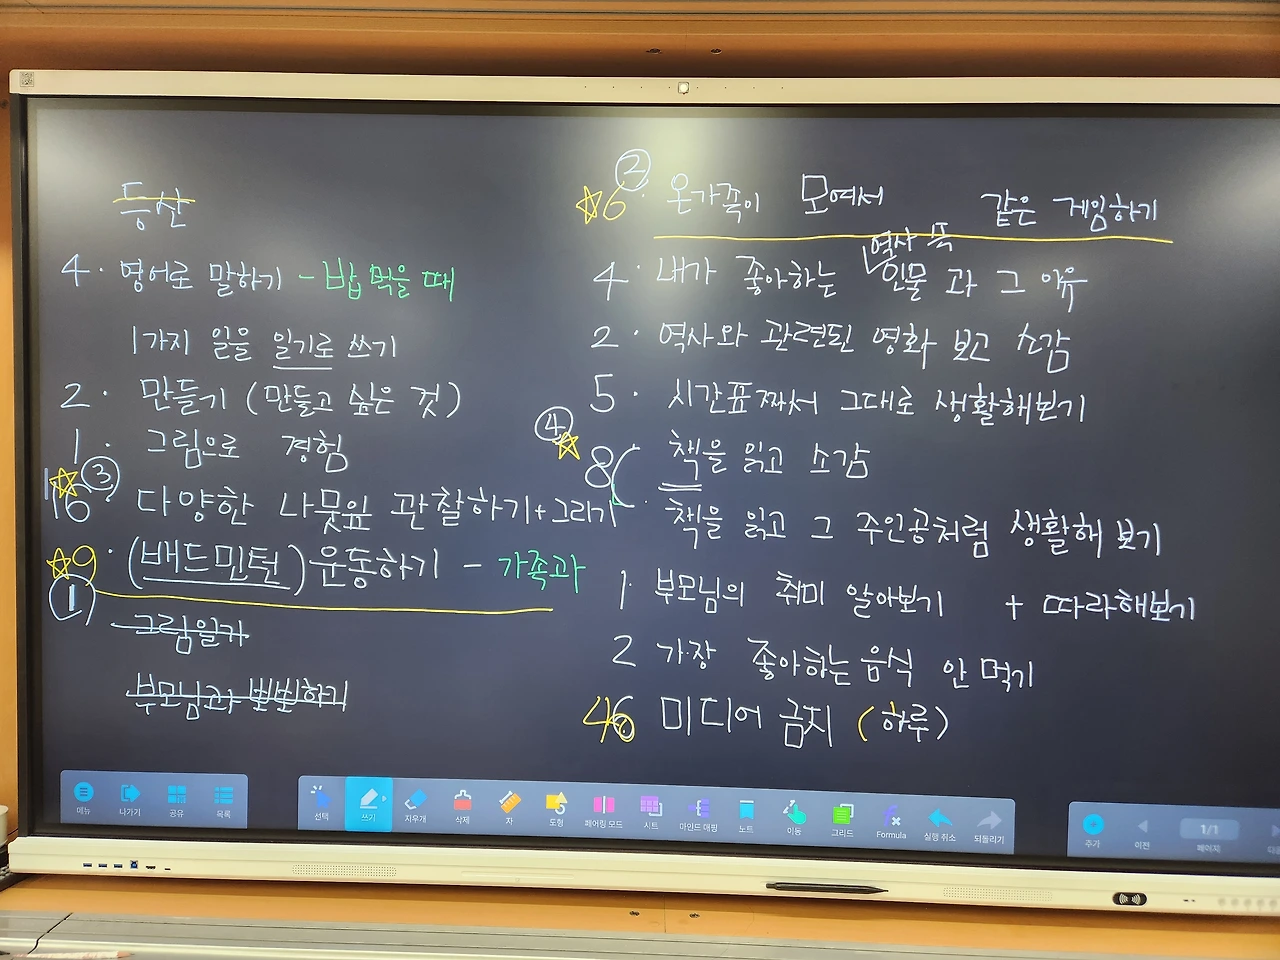 등산
4· 영어로 말하기 - 밥 먹을 때
1가지 일을 일기로 쓰기
2· 만들기 (만들고 싶은 것)
1· 그림으로 경험
③
16 다양한 나뭇잎 관찰하기 + 그리기
☆9· (배드민턴) 운동하기 - 가족과
①
그림일기
부모님과 뽀뽀하기
②
☆6· 온가족이 모여서 같은 게임하기
역사 쪽
4· 내가 좋아하는 인물과 그 이유
2· 역사와 관련된 영화 보고 소감
5· 시간표 짜서 그대로 생활해보기
④
☆8( 책을 읽고 소감
· 책을 읽고 그 주인공처럼 생활해 보기
1· 부모님의 취미 알아보기 + 따라해보기
2 가장 좋아하는 음식 안 먹기
미디어 금지 (하루)
메뉴 나가기 공유 목록 선택 쓰기 지우개 삭제 자 도형 페어링 모드 시트 마인드 매핑 노트 이동 그리드 Formula 실행 취소 되돌리기 추가 이전 1/1 페이지